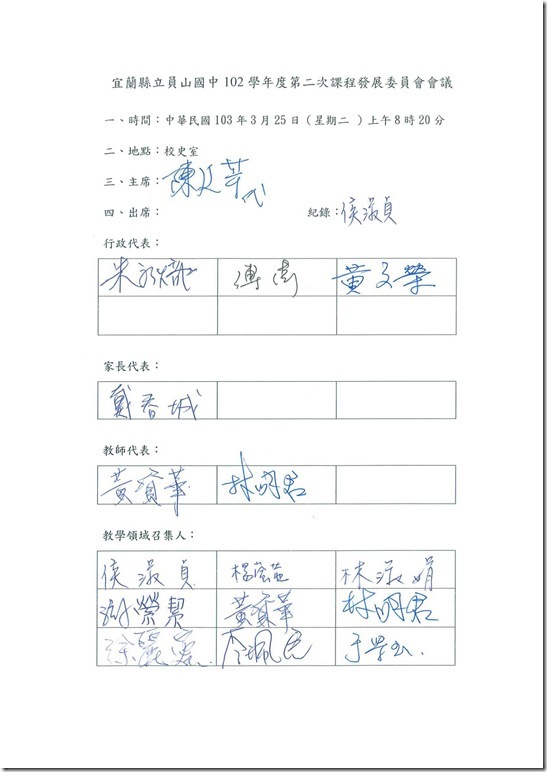 宜蘭縣立員山國中 102 學年度第二次課程發展委員會會議
一、時間：中華民國 103 年 3 月 25 日（星期二 ）上午 8 時 20 分
二、地點：校史室
三、主席：陳 代
四、出席： 紀錄：侯淑貞
行政代表：
黃文榮
家長代表：
戴春城
教師代表：
黃資華 林明君
教學領域召集人：
侯淑貞 林淑娟
黃資華 林明君